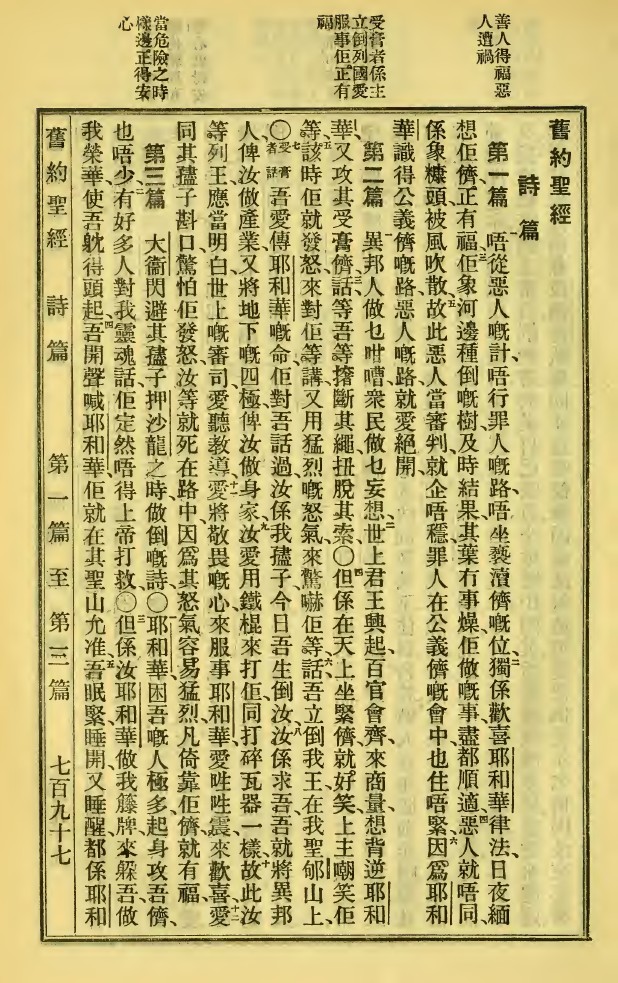 善人得福惡
人遭禍
受膏者係主
立倒列國愛
服事佢正有
福
當危險之時
樣邊正得安
心
舊約聖經
詩篇
第一篇 一唔從惡人嘅計、唔行罪人嘅路、唔坐褻瀆儕嘅位、二獨係歡喜耶和華律法、日夜緬
想佢儕正有福、三佢象河邊種倒嘅樹、及時結果、其葉冇事燥、佢做嘅事、盡都順適、四惡人就唔同、
係象糠頭被風吹散、五故此惡人當審判、就企唔穩、罪人在公義儕嘅會中、也住唔緊、六因爲耶和
華識得公義儕嘅路、惡人嘅路就愛絕開、
第二篇 一異邦人做乜咁嘈、衆民做乜妄想、二世上君王興起、百官會齊、來商量、想背逆耶和
華、又攻其受膏儕、三話、等吾等搚斷其繩、扭脫其索、〇四但係在天上坐緊儕就好笑、上主嘲笑佢
等、五該時佢就發怒來對佢等講、又用猛烈嘅怒氣來驚嚇佢等、六話、吾立倒我王、在我聖郇山上、
〇七受膏者話吾愛傳耶和華嘅命、佢對吾話過、汝係我孻子、今日吾生倒汝、八汝係求吾、吾就將異邦
人俾汝做產業、又將地下嘅四極俾汝做身家、九汝愛用鐵棍來打佢、同打碎瓦器一樣、十故此汝
等列王、應當明白、世上嘅審司、愛聽教導、十一愛將敬畏嘅心來服事耶和華、愛呭呭震來歡喜、十二愛
同其孻子斟口、驚怕佢發怒、汝等就死在路中、因爲其怒氣容易猛烈、凡倚靠佢儕就有福、
第三篇 大衞閃避其孻子押沙龍之時做倒嘅詩〇一耶和華、困吾嘅人極多、起身攻吾儕、
也唔少、二有好多人對我靈魂話、佢定然唔得上帝打救、〇三但係汝耶和華做我籐牌來躲吾、做
我榮華、使吾躭得頭起、四吾開聲喊耶和華、佢就在其聖山允准、五吾眠緊睡開、又睡醒、都係耶和
舊約聖經 詩篇 第一篇至第三篇 七百九十七